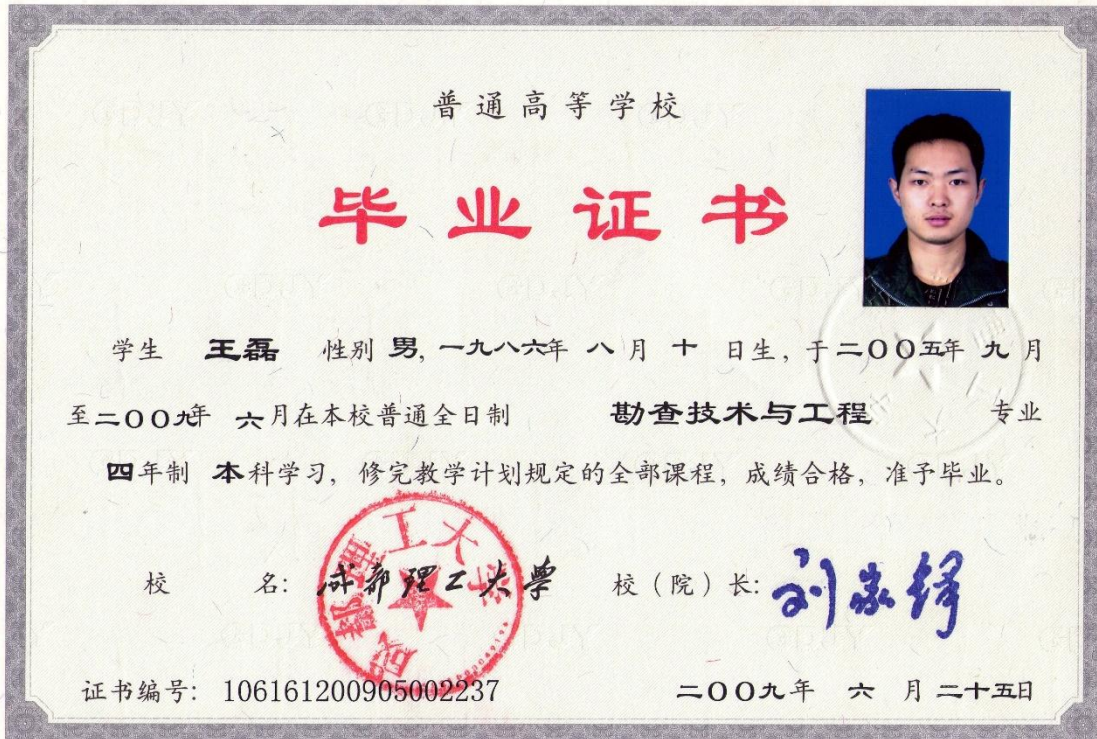 普通高等学校
毕业证书
学生 王磊 性别 男, 一九八六年 八 月 十 日生, 于二〇〇五年 九 月
至二〇〇九年 六月在本校普通全日制 勘查技术与工程 专业
四年制 本科学习, 修完教学计划规定的全部课程, 成绩合格, 准予毕业。
校 名: 成都理工大学 校(院)长: 刘家铎
成都理工大学
证书编号: 106161200905002237 二〇〇九年 六 月 二十五日